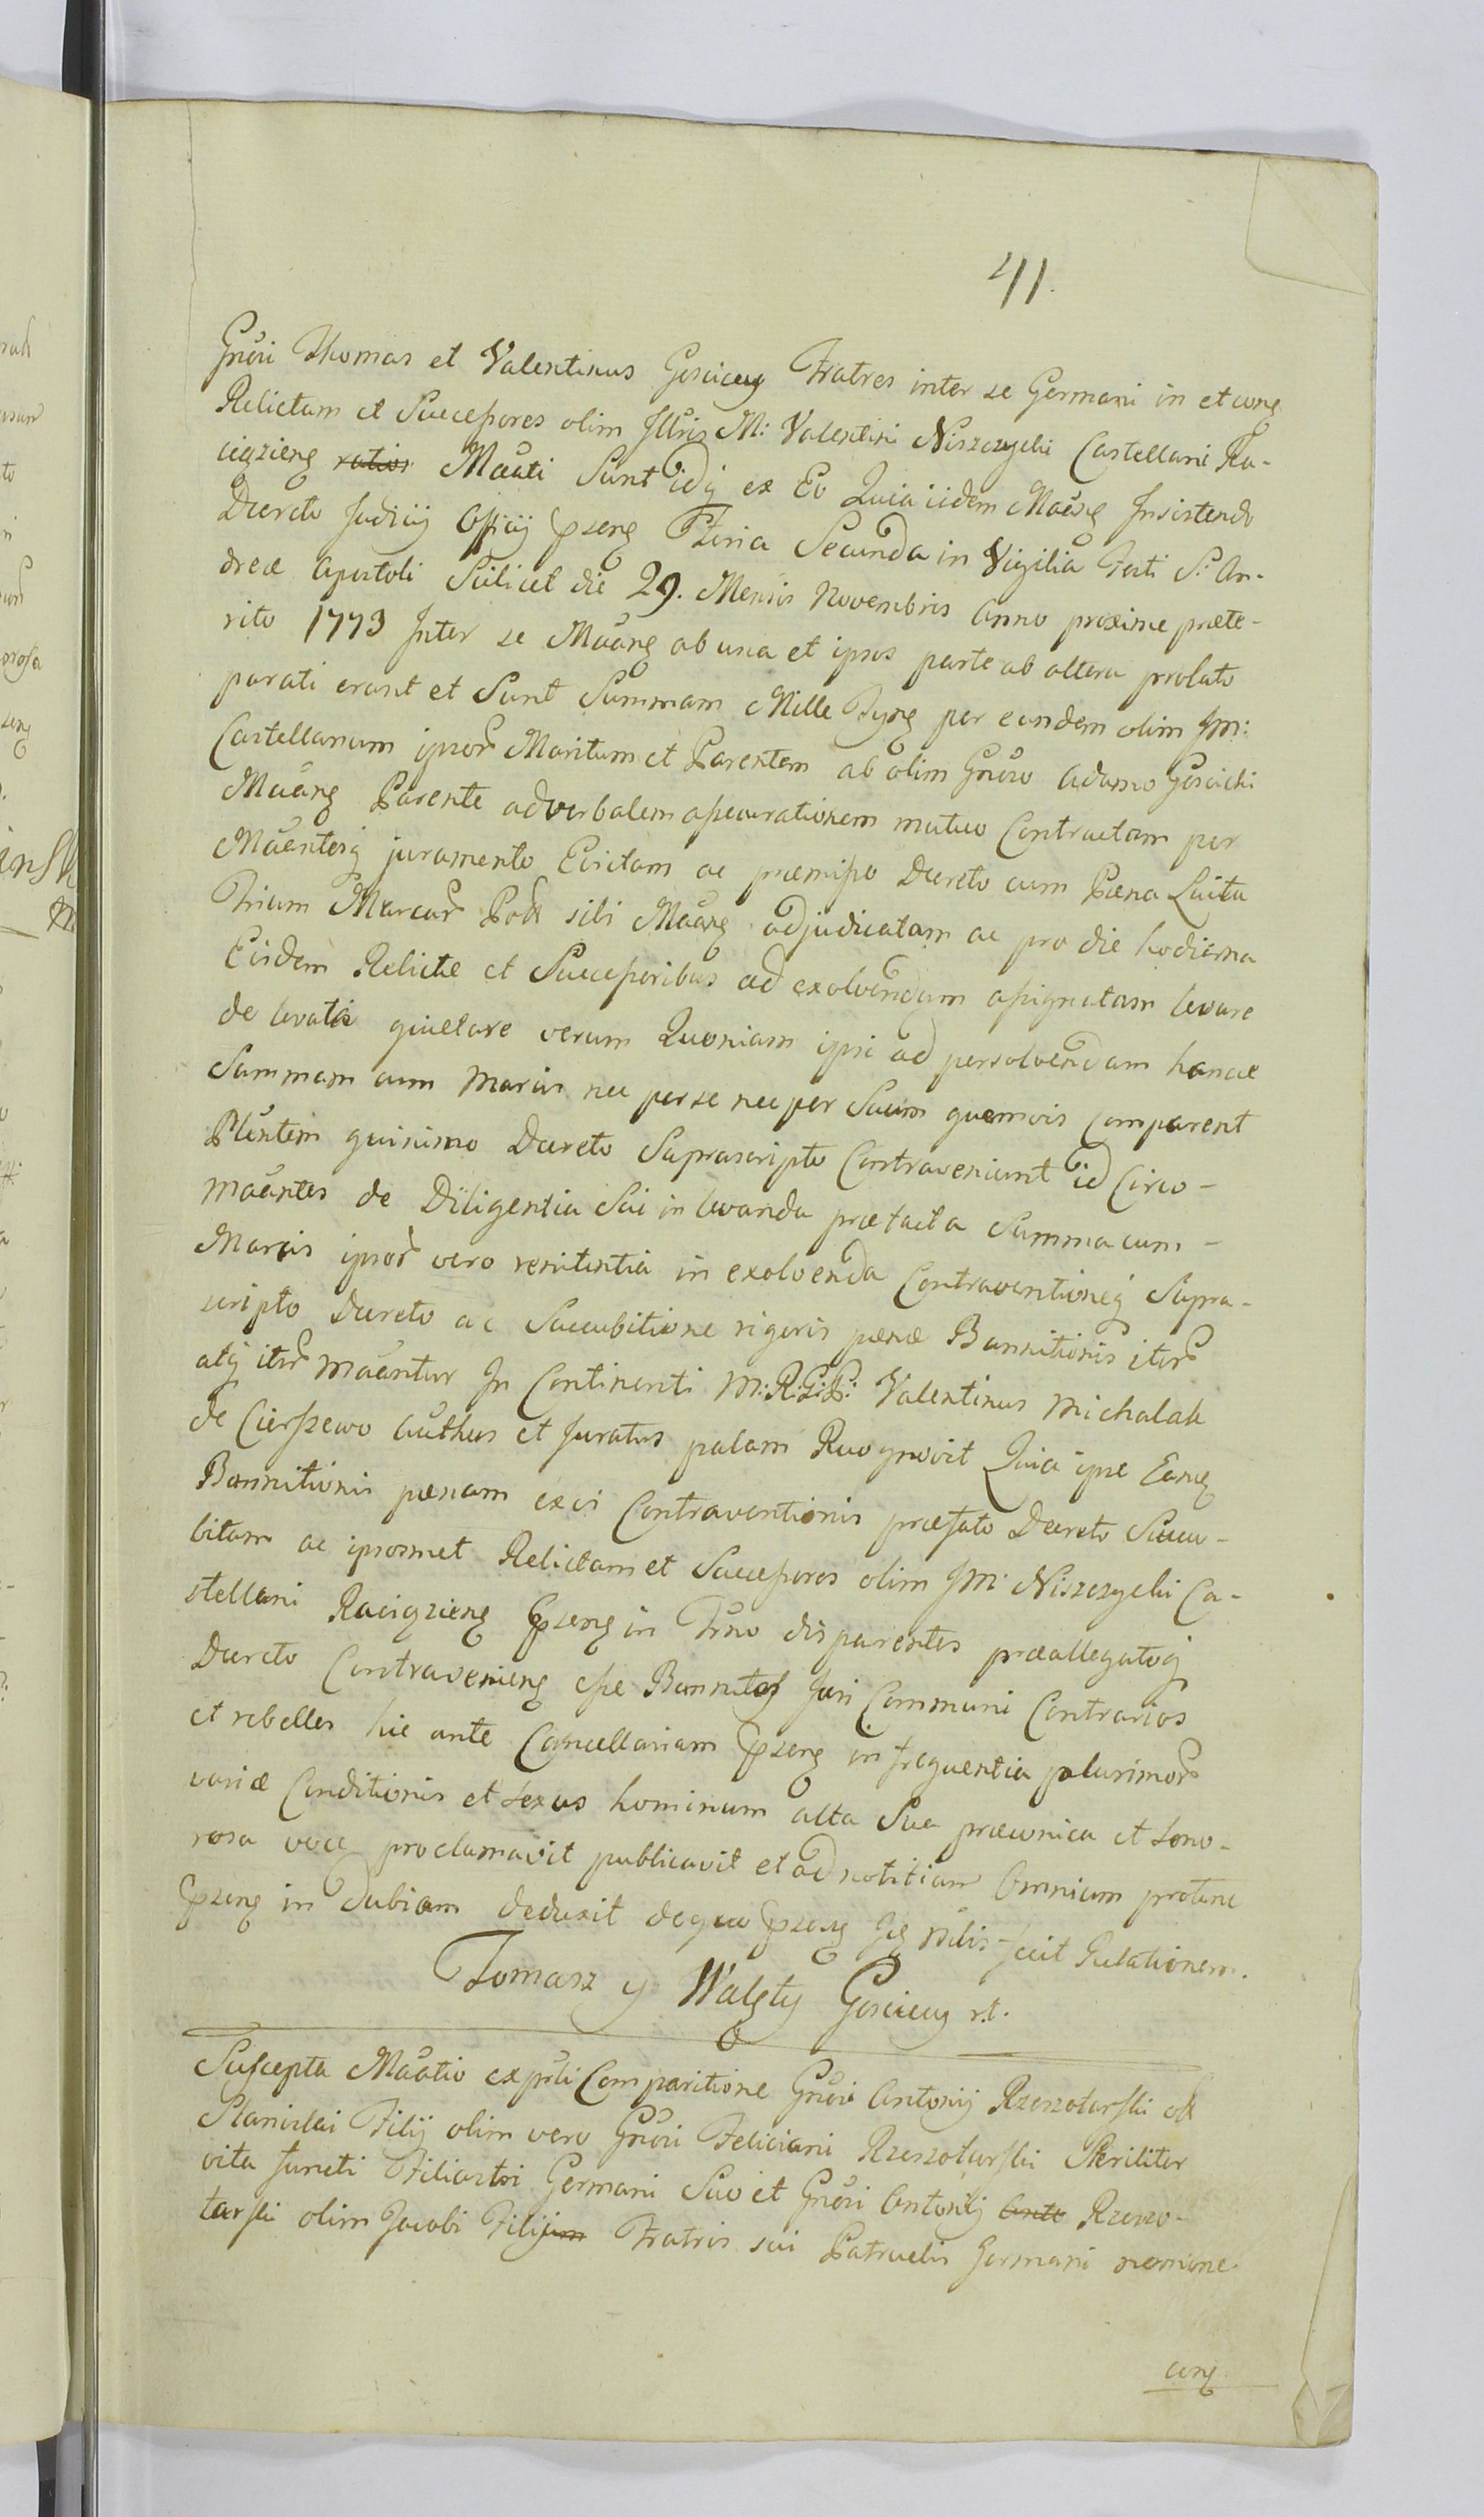 41.
Gnỏsi Thomas et Valentinus Gosciccy Fratres inter se Germani in et cong
Relictam et Successores olim Illris M: Valentini Niszczycki Castellani Ra-
ciązieng ratior Maỏti Sunt idq ex Eo Quia iidem Maỏng Insistendo
Decreto Judicij Officij ẜpseng Feria Secunda in Vigilia Festi S: An-
dreæ Apostoli Scilicet die 29. Mensis Novembris Anno proxime præte-
rito 1773 Inter se Maỏng ab una et ipsos parte ab altera prolato
parati erant et Sunt Summam Mille Tyng per eundem olim Jm:
Castellanum ipsor Maritum et Parentem ab olim Gnỏso Adamo Goscicki
Maỏng Parente ad verbalem assecurationem mutuo Contractam per
Maỏntesq juramento Evictam ac præmisso Decreto cum Pæna Luita
Trium Marcar Pol sibi Maỏng adjudicatam ac pro die hodierna
Eisdem Relictæ et Successoribus ad exolvendum assignatam levare
de levata quietare verum Quoniam ipsi ad persolvendam hancce
Summam cum Marcis nec per se nec per Suum quemvis comparent
Plentem quinimo Decreto Suprascripto Contraveniunt id Circo-
Maỏntes de Diligentia Sui in levanda prætacta Summa cum-
Marcis ipsor vero renitentia in exolvenda Contraventioneq Supra-
scripto Decreto ac Succubitione rigoris pænæ Bannitionis iter
atq iter Maỏntur In Continenti M:R:G:P: Valentinus Michalak
de Cierszewo Authus et Juratus palam Recognovit Quia ipse Eang
Bannitionis pænam ex vi Contraventionis præfato Decreto Succu-
bitam ac ipsosmet Relictam et Successores olim Jm: Niszczycki Ca-
stellani Raciązieng ẜpseng in Trno disparentes præallegatoq
Decreto Contravenieng esse Bannitos Juri Communi Contrarios
et rebelles hic ante Cancellariam ẜpseng in frequentia plurimor
variæ Conditionis et Sexus hominum alta Sua præconica et Sono-
rosa voce proclamavit publicavit et ad notitiam Omnium protunc
ẜpseng in dubiam deduxit de quo ẜpseng fecit Relationem.
Tomasz y Walęty Gosciccy r.t.
Suscepta Maỏtio ex prli Comparitione Gnỏsi Antonij Rzeszotarski oli
Stanislai Filij olim vero Gnỏsi Feliciani Rzeszotarski Steriliter
vita functi Filiastri Germani Suo et Gnỏsi Antonij Ante Rzeszo-
tarski olim Jacobi Filijum Fratris sui Patruelis Germani nomine
cong